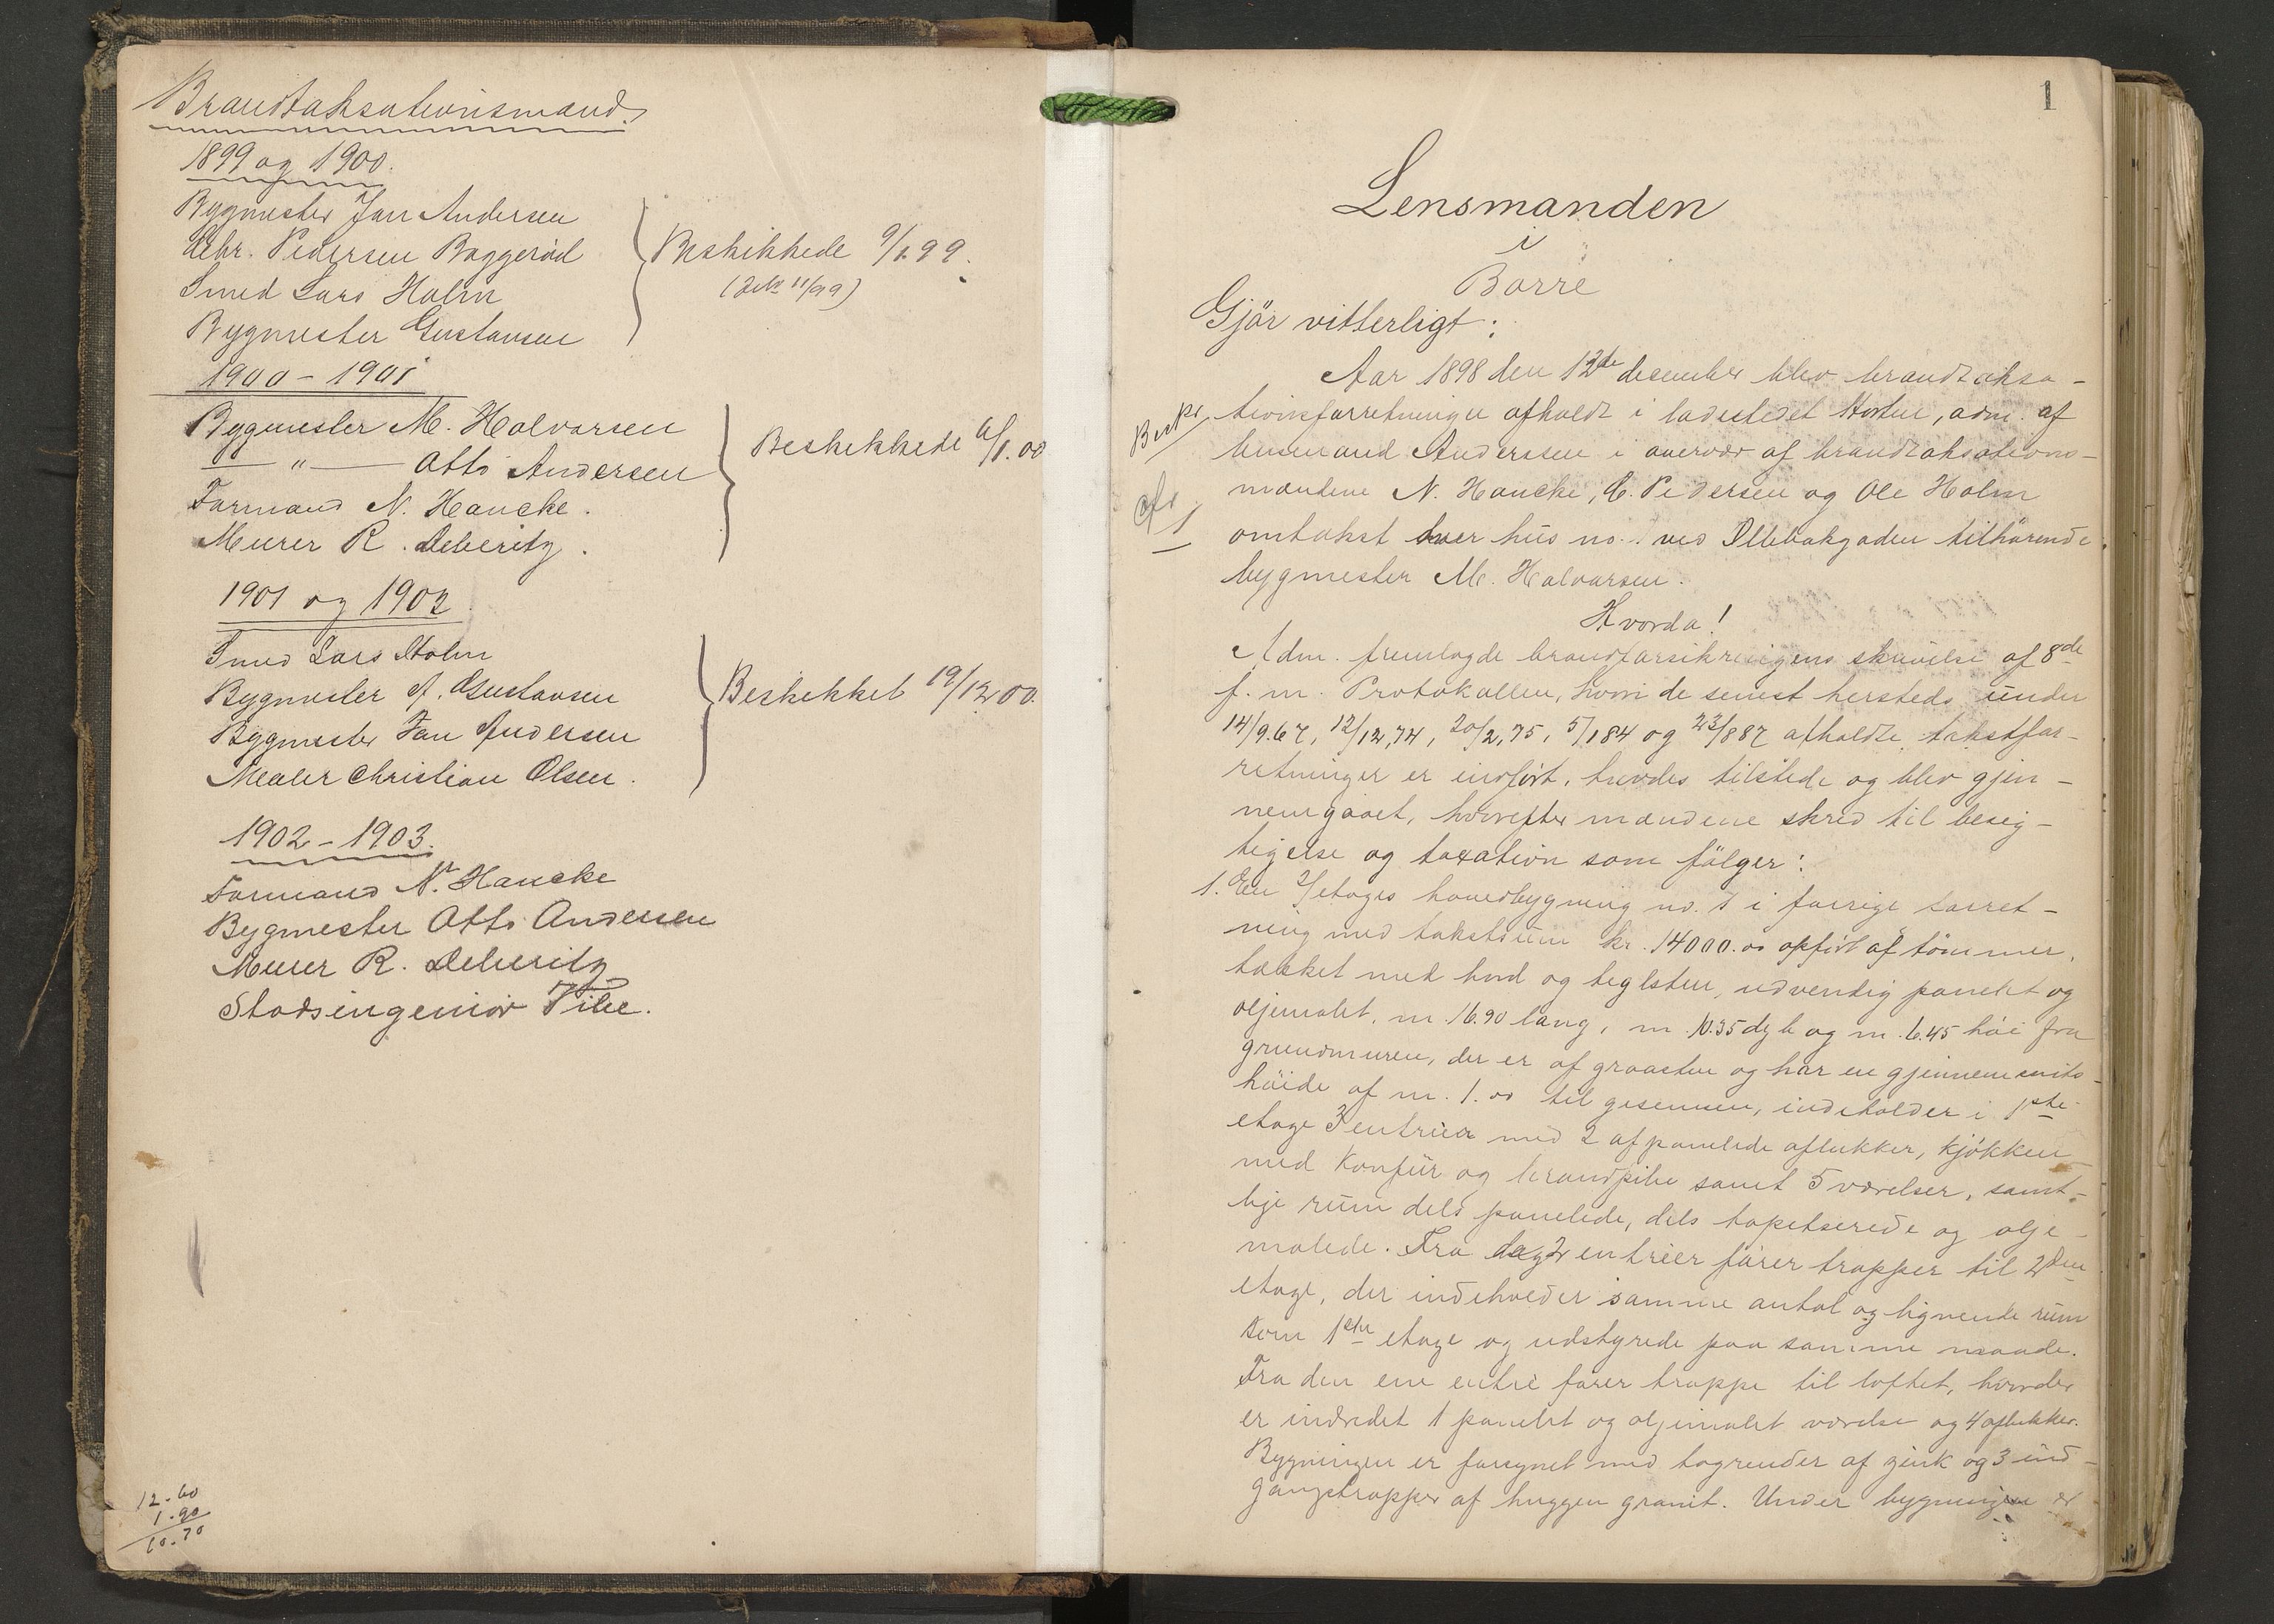 Brandtaksationsmænd.
1899 og 1900.
Bygmester Jan Andersen
Chr. Pedersen Baggerød
Smed Lars Holm
Bygmester Gustavsen
Beskikkede 9/1.99.
1900 - 1901
Bygmester M. Halvorsen
— " — Otto Andersen
Formand N. Hancke.
Murer R. Deberitz.
Beskikkede 6/1.00
1901 og 1902
Smed Lars Holm
Bygmester A. Gustavsen
Bygmester Jan Andersen
Maler Christian Olsen.
Beskikket 19/12 00.
1902 - 1903.
Formand N. Hancke
Bygmester Otto Andersen
Murer R. Deberitz
Stadsingeniør Vibe.
12.60
1.90
10.70
1
Lensmanden
i
Borre
Gjör vitterligt:
Aar 1898 den 12de desember blev brandtaksa-
tionsforretninger afholdt i ladestedet Horten, adm. af
lensmand Anderssen i overvær af brandtaksations-
mændene N. Hancke, C. Pedersen og Ole Holm
omtakst over hus no. 1 ved Ollebakgaden tilhørende
bygmester M. Halvorsen.
Hvorda!
Adm. fremlagde brandforsikringens skrivelse af 8de
f. m. Protokollen, hvori de senest hersteds under
14/9.67, 12/12,74, 20/2,75, 5/184 og 23/887 afholdte takstfor-
retninger er indført, havdes tilstede og blev gjen-
nemgaaet, hvorefter mændene skred til besig-
tigelse og taxation som fölger:
1. En 2/etages hovedbygning no. 1 i forrige forret-
ning med takstsum kr. 14000.00 opfört af tömmer,
tækket med bord og teglsten, udvendig panelet og
oljemalet, m. 16.90 lang, m. 10.35 dyb og m. 6.45 höi fra
grundmuren, der er af graasten og har en gjennemsnits-
höide af m. 1.00 til gesemsen, indeholder i 1ste
etage 3 entrèer med 2 afpanelede aflukker, kjökken
med komfür og brandpibe samt 5 værelser, samt-
lige rüm dels panelede, dels tapetserede og olje-
malede. Fra 2 entrèer förer trapper til 2den
etage, der indeholder samme antal og lignende rüm
som 1ste etage og udstyrede paa samme maade.
Fra den ene entrè förer trappe til loftet, hvorder
er indredet 1 panelet og oljemalet værelse og 4 aflukker.
Bygningen er forsynet med tagrender af zink og 3 ind-
gangstrapper af huggen granit. Under bygningen er